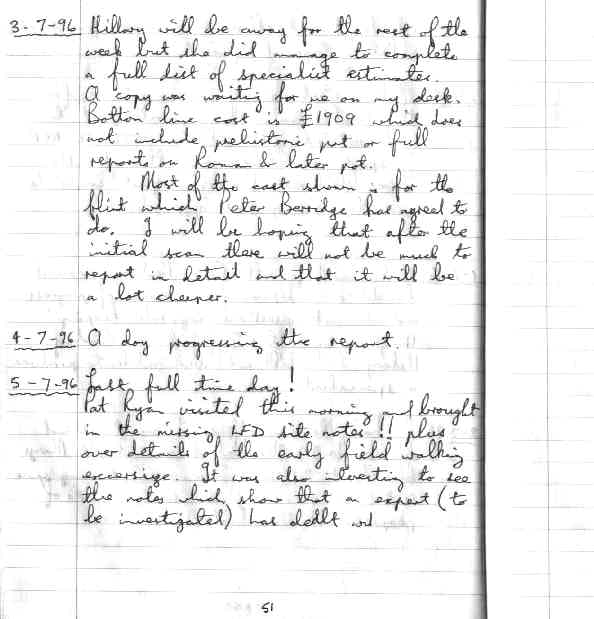 3-7-96 Hillary will be away for the rest of the
week but she did manage to complete
a full list of specialist estimates.
A copy was waiting for me on my desk.
Bottom line cost is £1909 which does
not include prehistoric pot or full
reports on Roman & later pot.
Most of the cost shown is for the
flint which Peter Berridge has agreed to
do. I will be hoping that after the
initial scan there will not be much to
report in detail and that it will be
a lot cheaper.
4-7-96 A day progressing the report.
5-7-96 Last full time day!
Pat Ryan visited this morning and brought
in the missing LFD site notes!! plus
over details of the early field walking
excersige. It was also interesting to see
the notes which show that an expert (to
be investigated) has dealt with
51